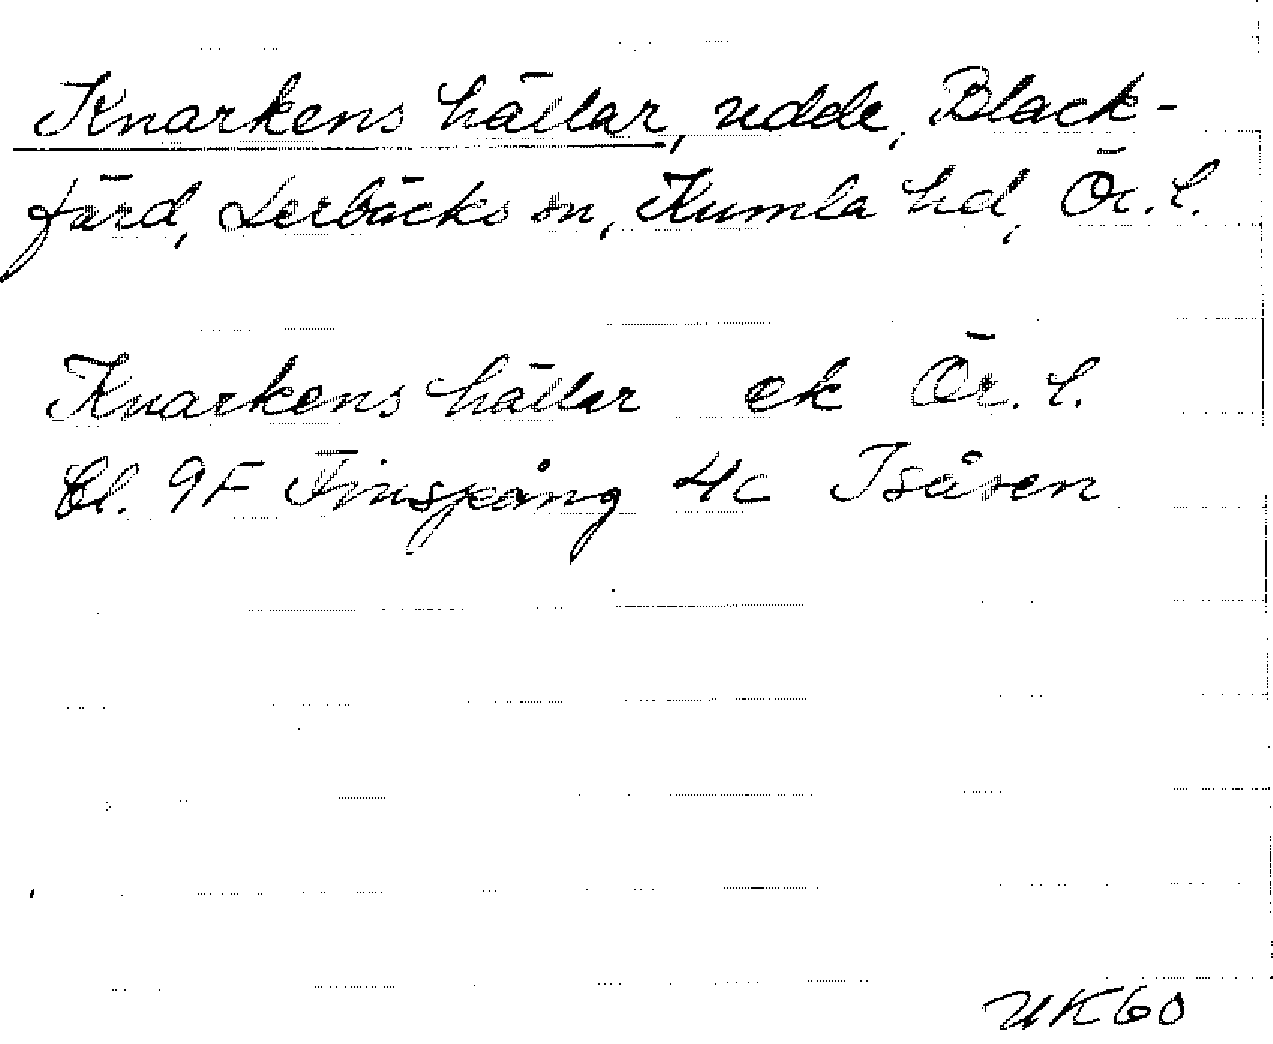 Knarkens hällar, udde, Black-
färd, Lerbäcks sn, Kumla hd, Ör. l.
Knarkens hällar ek Ör. l.
Bl. 9F Finspång 4c Isåsen
UK60